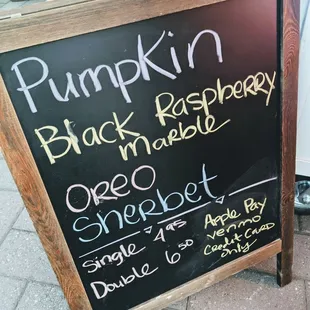 Pumpkin
Black Raspberry
marble
OREO
Sherbet
Single 4.95
Double 6.50
Apple Pay
Venmo
Credit Card
Only